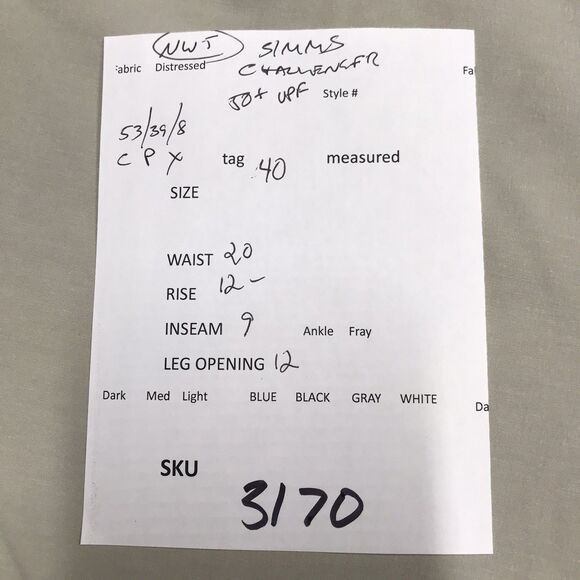 NWT SIMMS
CHALLENGER
Fabric Distressed Fa
50+ UPF Style #
53/39/8
C P X
tag 40 measured
SIZE
WAIST 20
RISE 12 -
INSEAM 9 Ankle Fray
LEG OPENING 12
Dark Med Light BLUE BLACK GRAY WHITE Da
SKU
3170